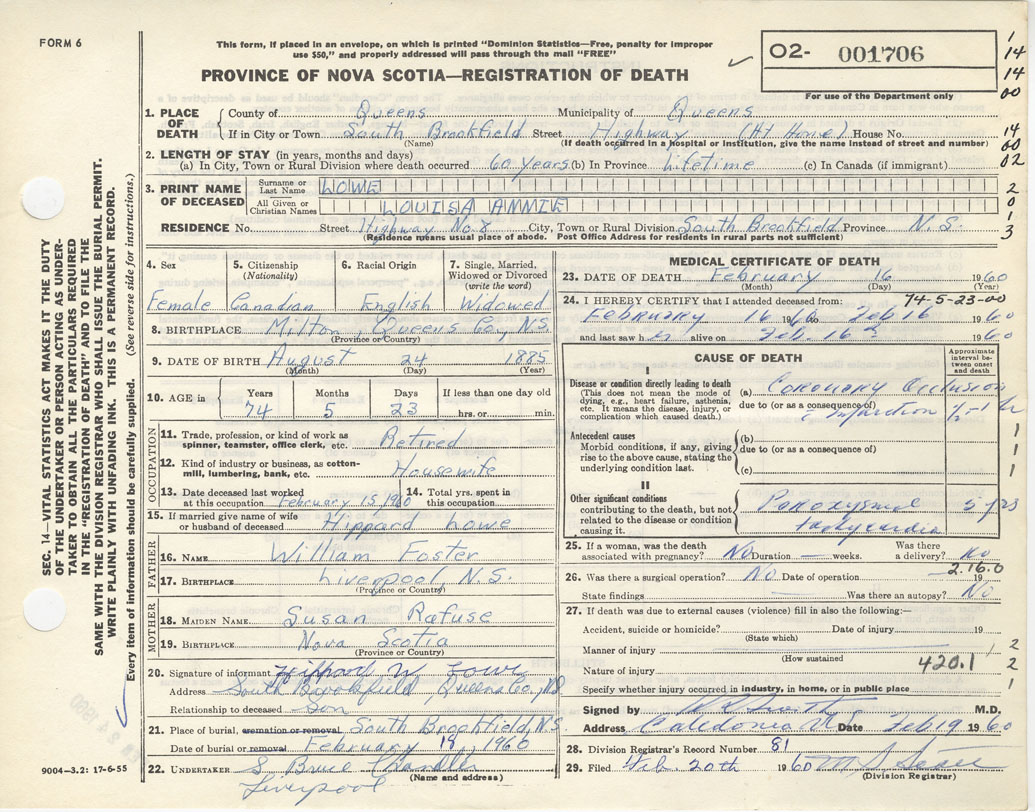 FORM 6
This form, if placed in an envelope, on which is printed "Dominion Statistics—Free, penalty for improper
use $50," and properly addressed will pass through the mail "FREE"
PROVINCE OF NOVA SCOTIA—REGISTRATION OF DEATH
O2- 001706
For use of the Department only
1
14
14
00
14
00
02
2
0
1
3
SEC. 14—VITAL STATISTICS ACT MAKES IT THE DUTY
OF THE UNDERTAKER OR PERSON ACTING AS UNDER-
TAKER TO OBTAIN ALL THE PARTICULARS REQUIRED
IN THE "REGISTRATION OF DEATH" AND TO FILE THE
SAME WITH THE DIVISION REGISTRAR WHO SHALL ISSUE THE BURIAL PERMIT.
WRITE PLAINLY WITH UNFADING INK. THIS IS A PERMANENT RECORD.
Every item of information should be carefully supplied. (See reverse side for instructions.)
1. PLACE OF DEATH
County of Queens Municipality of Queens
If in City or Town South Brookfield Street Highway (At Home) House No.
(Name) (If death occurred in a hospital or institution, give the name instead of street and number)
2. LENGTH OF STAY (in years, months and days)
(a) In City, Town or Rural Division where death occurred 60 years (b) In Province Lifetime (c) In Canada (if immigrant)
3. PRINT NAME OF DECEASED
Surname or Last Name LOWE
All Given or Christian Names LOUISA ANNIE
RESIDENCE No. Street Highway No. 8 City, Town or Rural Division South Brookfield Province N.S.
(Residence means usual place of abode. Post Office Address for residents in rural parts not sufficient)
4. Sex 5. Citizenship (Nationality) 6. Racial Origin 7. Single, Married, Widowed or Divorced (write the word)
Female Canadian English Widowed
8. BIRTHPLACE Milton, Queens Co., N.S.
(Province or Country)
9. DATE OF BIRTH August 24 1885
(Month) (Day) (Year)
10. AGE in Years Months Days If less than one day old
74 5 23 hrs. or min.
OCCUPATION
11. Trade, profession, or kind of work as spinner, teamster, office clerk, etc. Retired
12. Kind of industry or business, as cotton-mill, lumbering, bank, etc. Housewife
13. Date deceased last worked at this occupation February 15, 1960 14. Total yrs. spent in this occupation
15. If married give name of wife or husband of deceased Hippard Lowe
FATHER
16. NAME William Foster
17. BIRTHPLACE Liverpool, N.S.
(Province or Country)
MOTHER
18. MAIDEN NAME Susan Rafuse
19. BIRTHPLACE Nova Scotia
(Province or Country)
20. Signature of informant Hippard W. Lowe
Address South Brookfield Queens Co., N.S.
Relationship to deceased Son
21. Place of burial, cremation or removal South Brookfield, N.S.
Date of burial or removal February 18, 1960
22. UNDERTAKER S. Bruce Chandler
(Name and address)
Liverpool
9004—3.2: 17-6-55
MEDICAL CERTIFICATE OF DEATH
23. DATE OF DEATH February 16 1960
(Month) (Day) (Year)
24. I HEREBY CERTIFY that I attended deceased from: 74-5-23-00
February 16 1960 to Feb 16 1960
and last saw her alive on Feb. 16 1960
CAUSE OF DEATH
Approximate interval between onset and death
I
Disease or condition directly leading to death
(This does not mean the mode of dying, e.g., heart failure, asthenia, etc. It means the disease, injury, or complication which caused death.)
(a) Coronary Occlusion
due to (or as a consequence of)
infarction ½-1 hr
Antecedent causes
Morbid conditions, if any, giving rise to the above cause, stating the underlying condition last.
(b)
due to (or as a consequence of)
(c)
1
1
1
II
Other significant conditions contributing to the death, but not related to the disease or condition causing it.
Paroxysmal 5 yrs
tachycardia
25. If a woman, was the death associated with pregnancy? No Duration — weeks. Was there a delivery? No
2.16.0
26. Was there a surgical operation? No Date of operation 19
State findings Was there an autopsy? No
27. If death was due to external causes (violence) fill in also the following:—
Accident, suicide or homicide? Date of injury 19
(State which)
Manner of injury 2
(How sustained)
Nature of injury 420.1 2
Specify whether injury occurred in industry, in home, or in public place 1
Signed by M.D.
Address Caledonia N.S. Date Feb 19 1960
28. Division Registrar's Record Number 81
29. Filed Feb. 20th 1960
(Division Registrar)